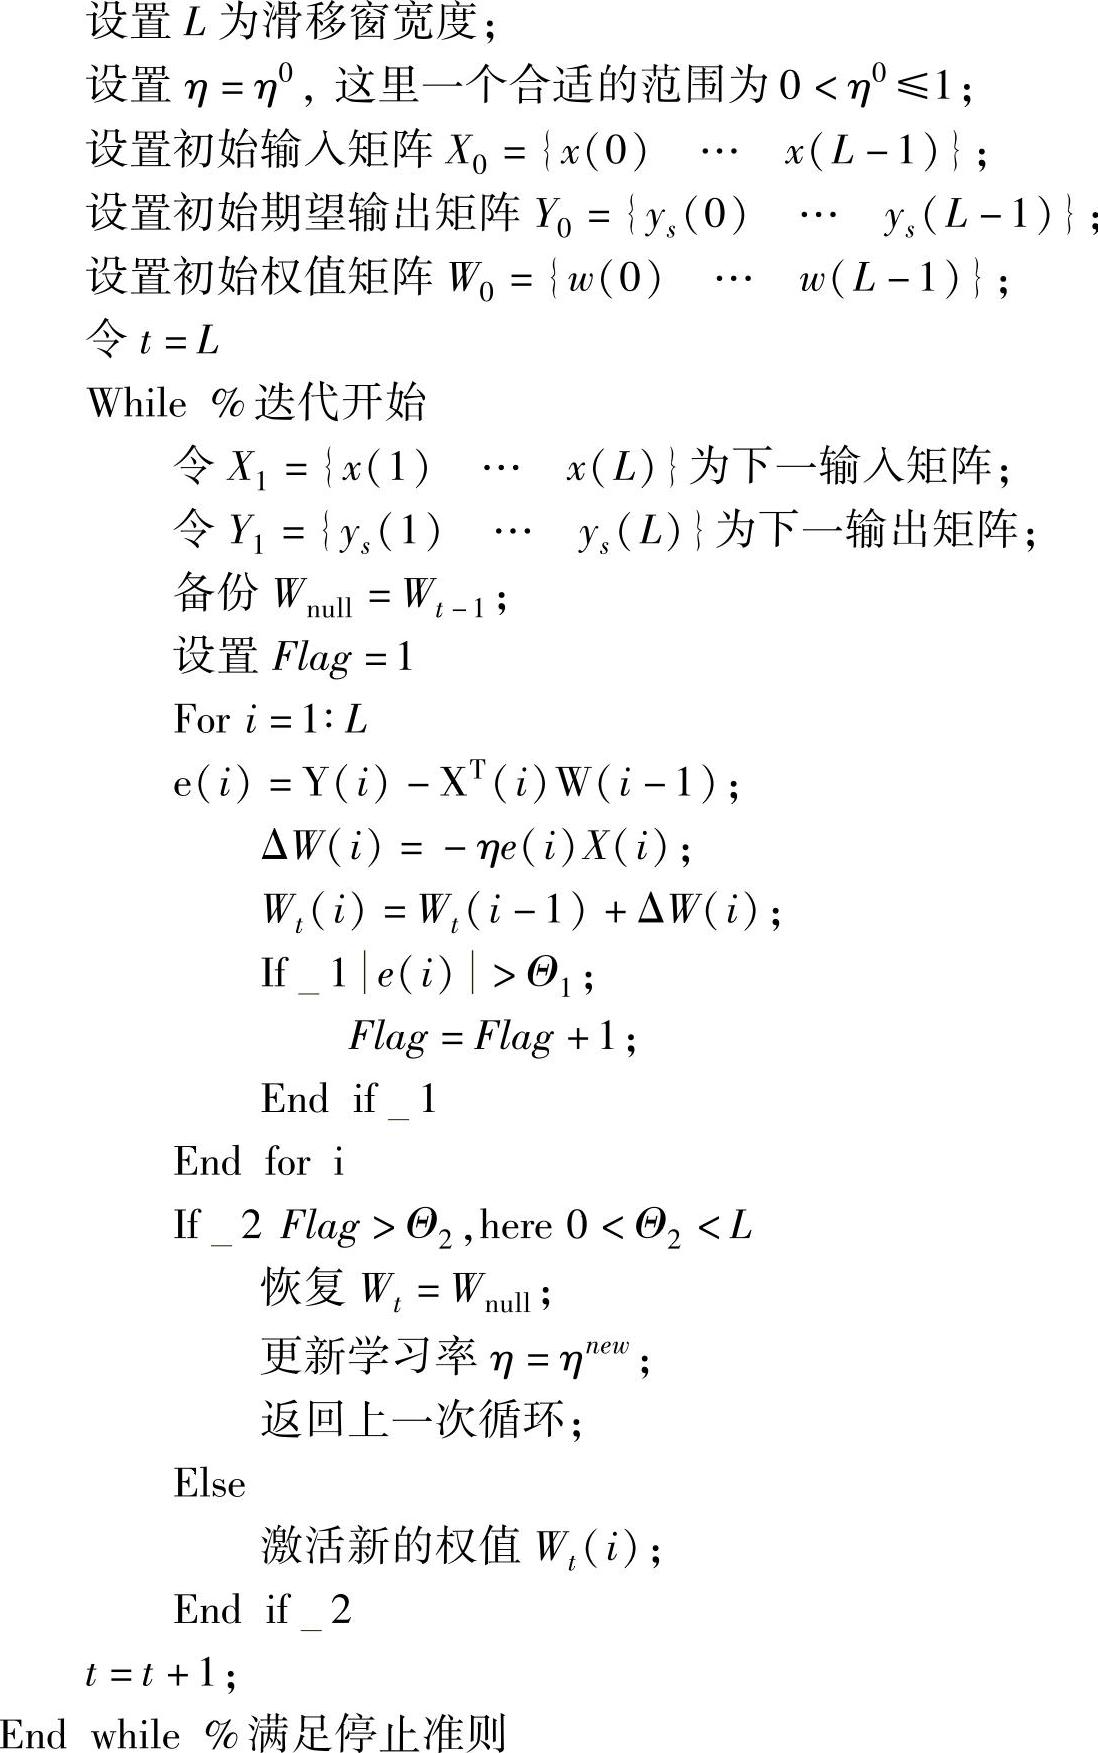 设置 L 为滑移窗宽度；
设置 η = η⁰，这里一个合适的范围为 0 < η⁰ ≤ 1；
设置初始输入矩阵 X₀ = {x(0) … x(L-1)}；
设置初始期望输出矩阵 Y₀ = {yₛ(0) … yₛ(L-1)}；
设置初始权值矩阵 W₀ = {w(0) … w(L-1)}；
令 t = L
While %迭代开始
令 X₁ = {x(1) … x(L)}为下一输入矩阵；
令 Y₁ = {yₛ(1) … yₛ(L)}为下一输出矩阵；
备份 W_null = W_{t-1}；
设置 Flag = 1
For i = 1∶L
e(i) = Y(i) - Xᵀ(i)W(i-1)；
ΔW(i) = -ηe(i)X(i)；
Wₜ(i) = Wₜ(i-1) + ΔW(i)；
If _ 1 |e(i)| > Θ₁；
Flag = Flag + 1；
End if _ 1
End for i
If _ 2 Flag > Θ₂,here 0 < Θ₂ < L
恢复 Wₜ = W_null；
更新学习率 η = η^{new}；
返回上一次循环；
Else
激活新的权值 Wₜ(i)；
End if _ 2
t = t + 1；
End while %满足停止准则